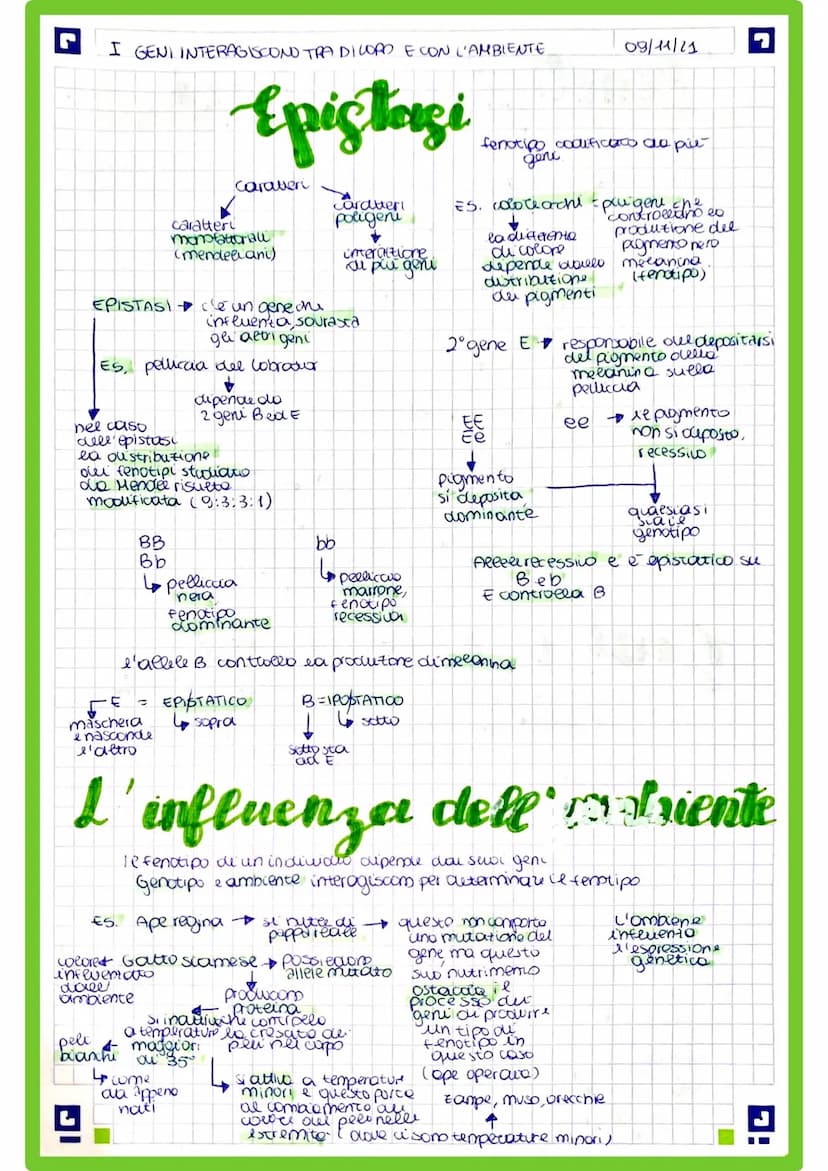 I GENI INTERAGISCONO TRA DI LORO E CON L'AMBIENTE
09/11/21
Epistasi
fenotipo codificato da più
geni
caratteri
caratteri
monofattoriali
(mendeliani)
caratteri
poligeni
interazione
di più geni
ES. colore occhi = più geni che
controllano la
produzione del
pigmento nero
melanina
(fenotipo)
la differenza
di colore
depende dalla
distribuzione
dei pigmenti
EPISTASI → c'è un gene che
influenza, sovrasta
gli altri geni
ES. pelliccia del labrador
dipende da
2 geni B ed E
nel caso
dell'epistasi
la distribuzione
dei fenotipi studiato
da Mendel risulta
modificata (9:3:3:1)
2° gene E → responsabile del depositarsi
del pigmento della
melanina sulla
pelliccia
EE
Ee
pigmento
si deposita
dominante
ee → il pigmento
non si deposita,
recessivo
qualsiasi
sia il
genotipo
BB
Bb
pelliccia
nera
fenotipo
dominante
bb
pelliccia
marrone,
fenotipo
recessiva
Allele recessivo e è epistatico su
B e b
E controlla B
l'allele B controlla la produzione di melanina
E = EPISTATICO
maschera
e nasconde
l'altro
sopra
B = IPOSTATICO
sotto
sotto sta
ad E
L'influenza dell'ambiente
Il fenotipo di un individuo dipende dai suoi geni
Genotipo e ambiente interagiscono per determinare il fenotipo
ES. Ape regina → si nutre di
pappa reale
→ questo non comporta
una mutazione del
gene ma questo
suo nutrimento
ostacola il
processo dei
geni di produrre
un tipo di
fenotipo in
questo caso
(ape operaia)
L'ambiente
influenza
l'espressione
genetica
colore
influenzato
dall'
ambiente
Gatto siamese → possiedono
allele mutato
producono
proteina
che
la crescita dei
peli nel corpo
si inattiva
a temperature
maggiori
di 35°
peli
bianchi
come
da appena
nati
si attiva a temperature
minori e questo porta
al cambiamento del
colore dei peli nelle
estremità (dove ci sono temperature minori)
zampe, muso, orecchie